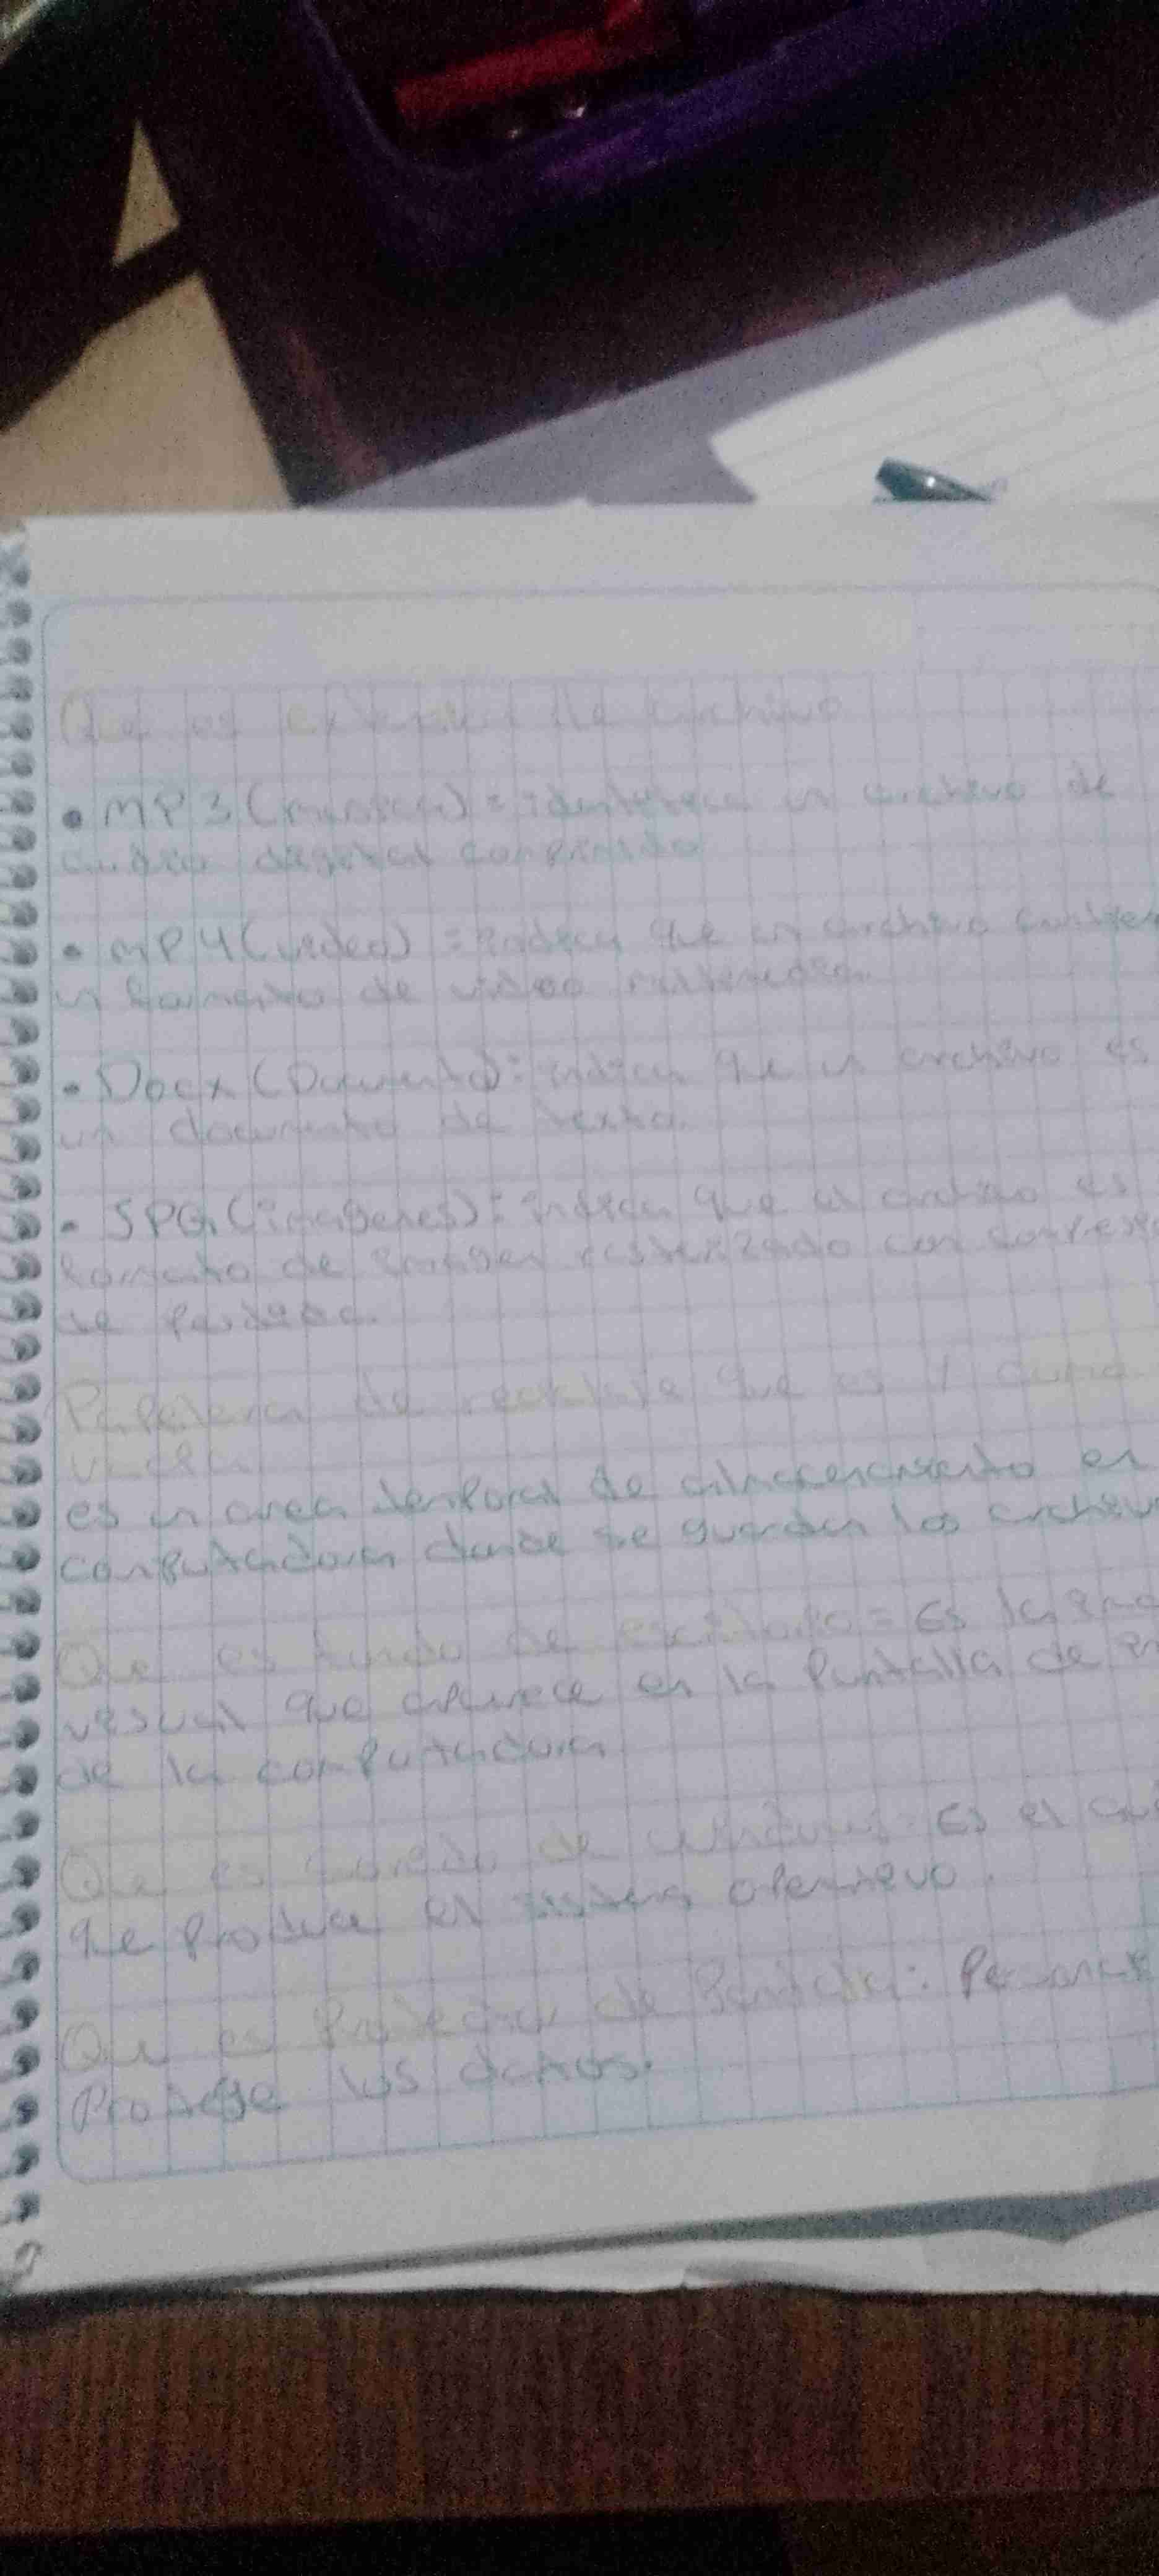 Que es extensión de archivo
• MP3 (musica) = identifica un archivo de
audio digital comprimido
• MP4 (video) = indica que un archivo contien
un formato de video multimedia.
• Docx (Documento): indica que un archivo es
un documento de texto.
• JPG (imagenes): indica que el archivo es
formato de imagen rasterizado con
de perdida.
Papelera de reciclaje que es y
es un area temporal de almacenamiento en
computadora donde se guardan los archivo
Que es fondo de escritorio = Es la
visual que aparece en la Pantalla de
de la computadora
Que es sonido de windows: Es el
que Produce el sistema operativo.
Que es Protector de Pantalla:
Protege los datos.